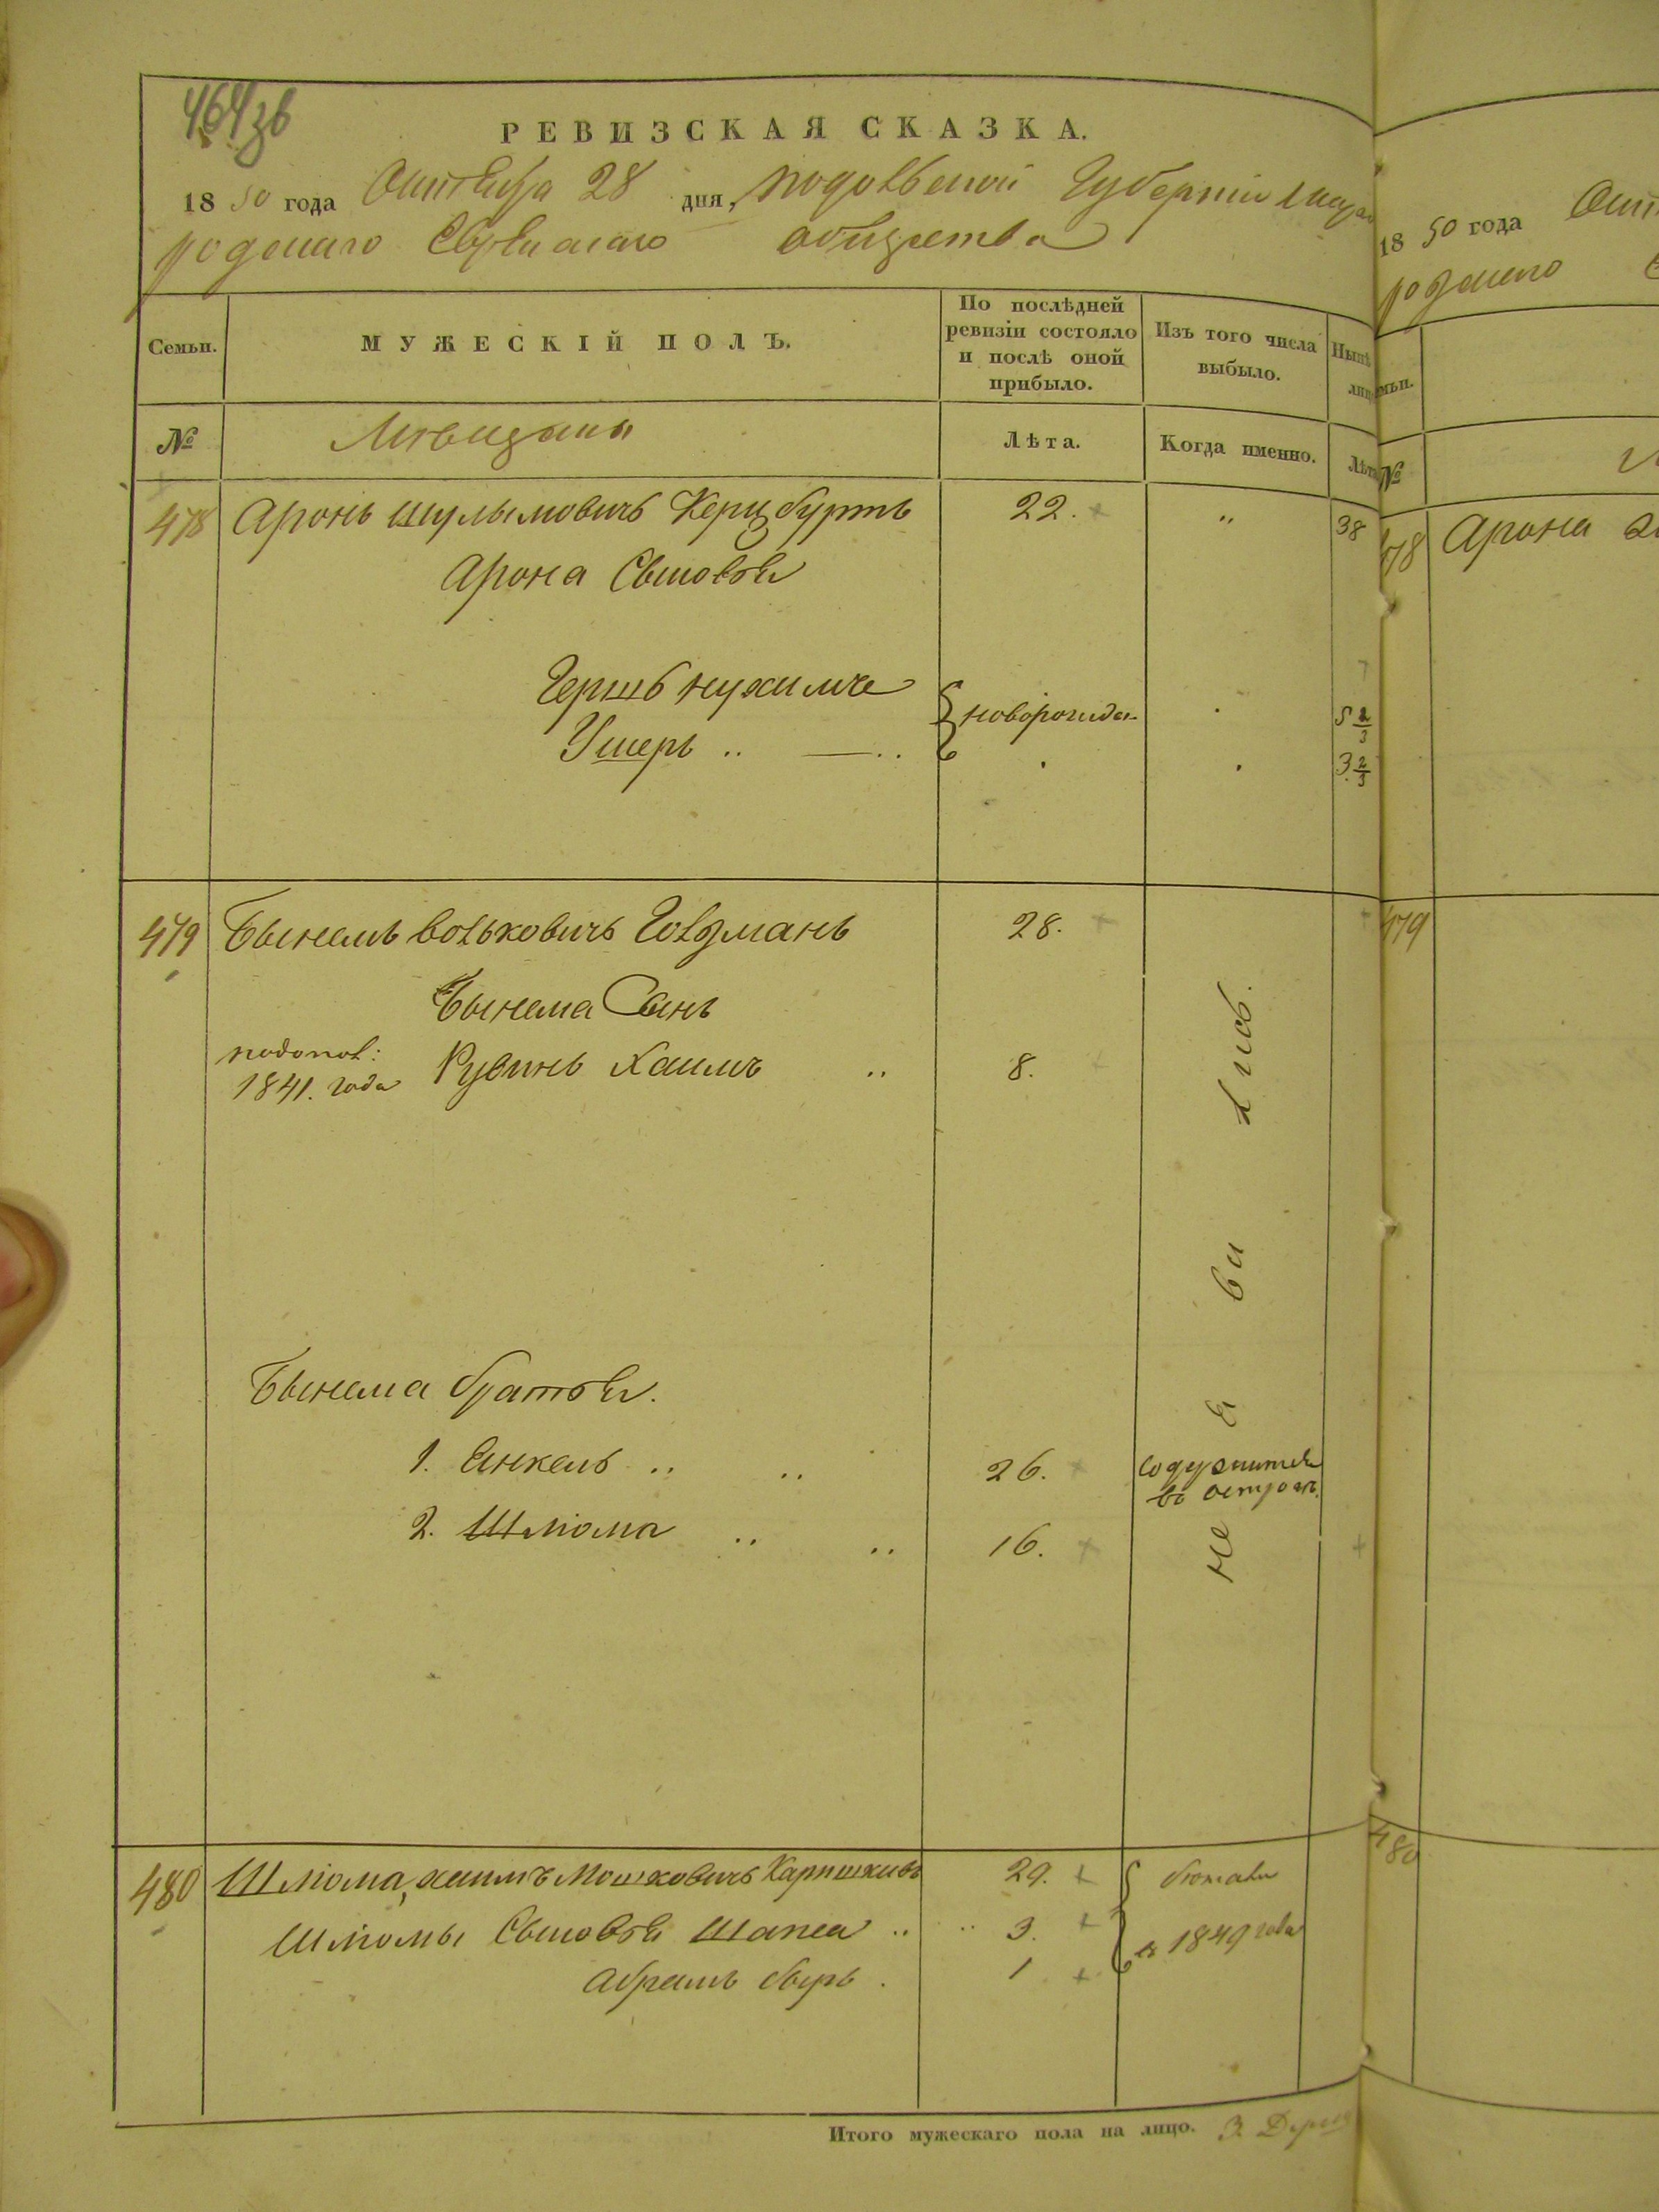 464зв
РЕВИЗСКАЯ СКАЗКА.
1850 года Октября 28 дня, Подольской Губернии
Еврейскаго общества
Семьи.
МУЖЕСКІЙ ПОЛЪ.
По послѣдней ревизіи состояло и послѣ оной прибыло.
Изъ того числа выбыло.
Нынѣ
№
Мѣщане
Лѣта.
Когда именно.
Лѣта
478 Аронъ Шулымовичъ Керцбуртъ 22. " 38
Арона Сыновья
Гершъ Нухимъ
новорожден
5 2/3
Ушеръ .. — ..
3. 2/3
479 Бынемъ Вольковичъ Голдманъ 28.
Бынема Сынъ
пополн:
1841. года
Рувинъ Хаимъ .. 8.
Бынема братья.
1. Янкель .. .. 26.
Содержится
въ острогѣ
2. Шлиома .. .. 16.
не я ви лис.
480 Шлиома, Хаимъ Мошковичъ 29.
бежали
Шлиомы Сыновья Шапса .. 3.
въ 1849 года
Абрамъ Беръ . 1
Итого мужескаго пола на лицо. 3
18 50 года
№
478 Арона
479
480